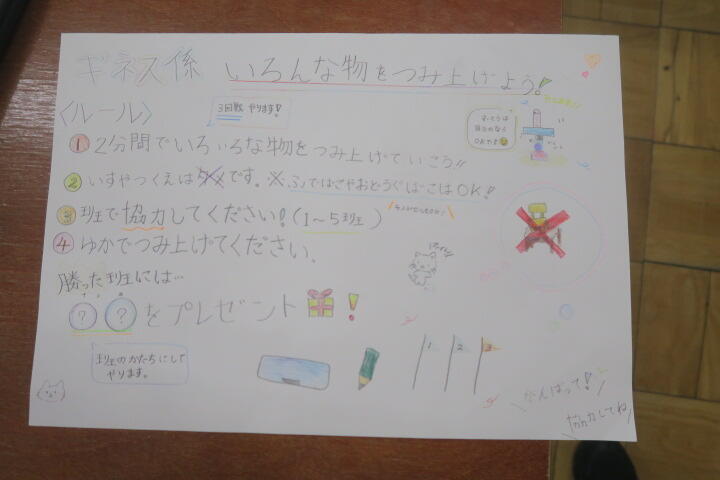 ギネス係 いろんな物をつみ上げよう!
〈ルール〉
3回戦 やります!
① 2分間でいろいろな物をつみ上げていこう!!
② いすやつくえはダメです。※ふでばこやおどうぐばこはOK!
③ 班で協力してください!(1〜5班)
④ ゆかでつみ上げてください。
勝った班には…
? ?をプレゼント !
班のかたちにして
やります。
1 2 3
がんばって!
協力してね